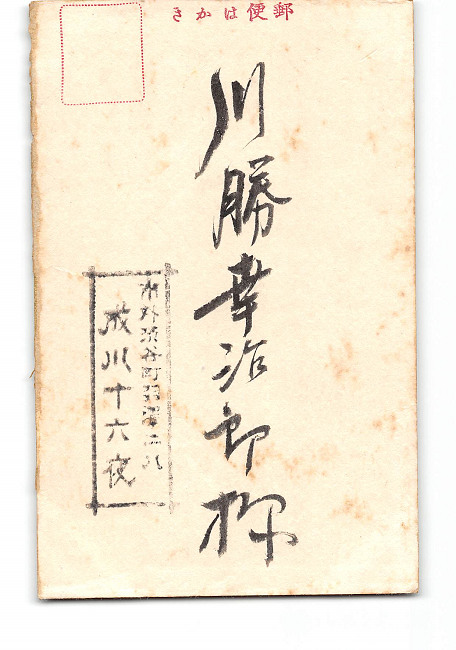 郵便はかき
川勝幸治郎様
市外渋谷町羽澤二八
成川十六夜